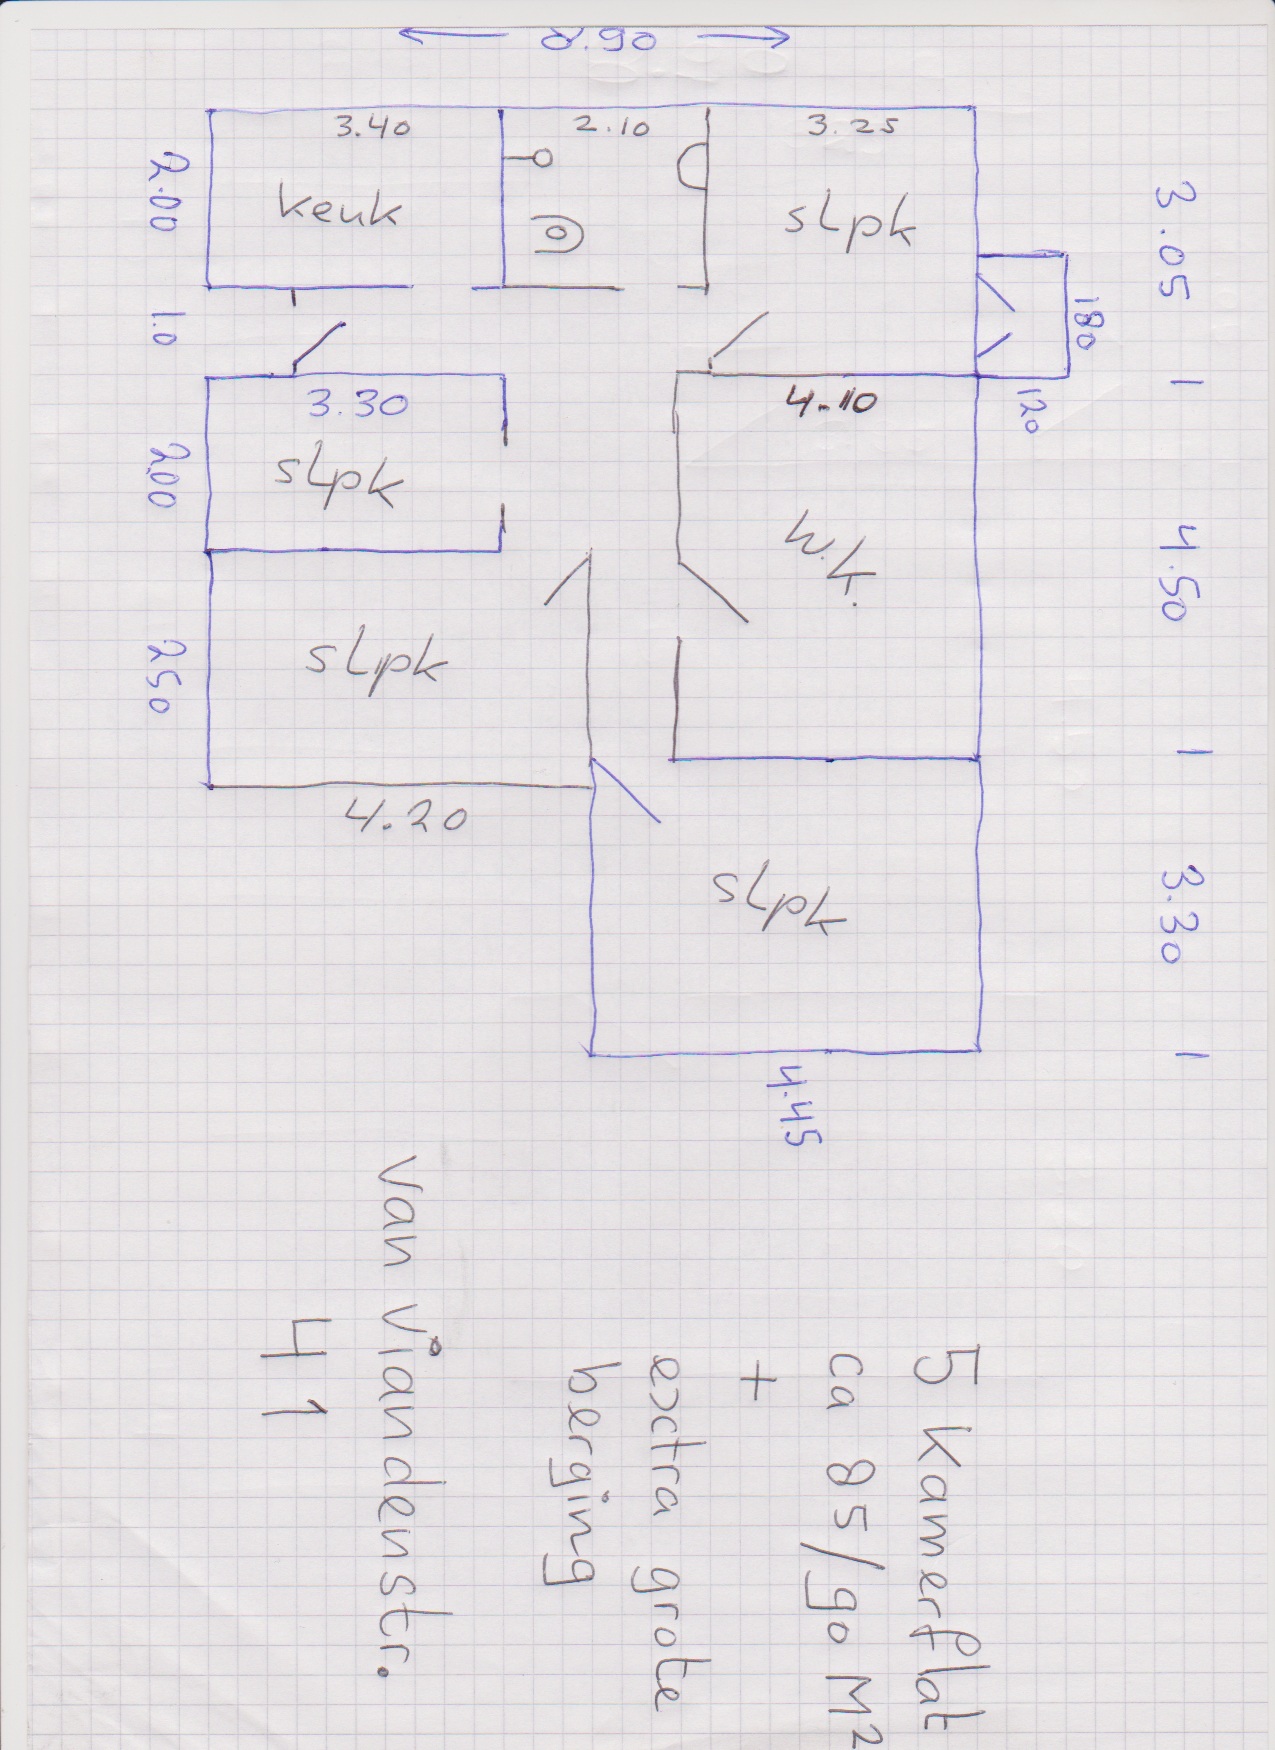 8.90
3.40
2.10
3.25
keuk
slpk
2.00
3.05
1.0
180
1
120
3.30
slpk
200
4.10
w.k.
4.50
slpk
250
1
4.20
slpk
3.30
1
4.45
5 Kamerflat
ca 85/90 M2
+
exctra grote
berging
Van Viandenstr.
41